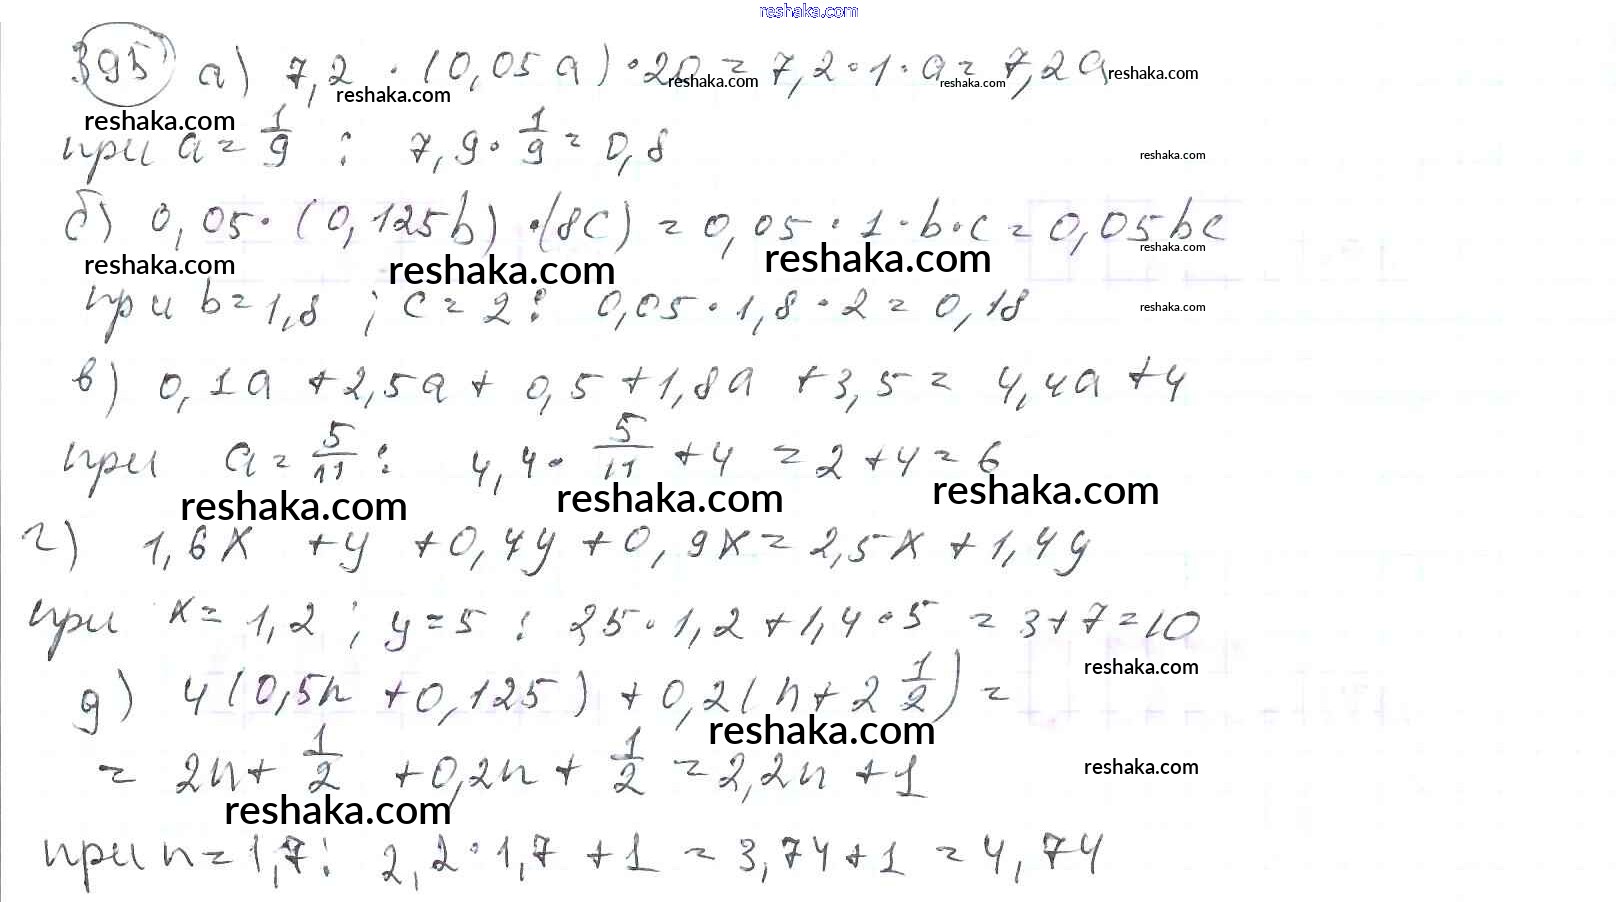 reshaka.com
395 а) 7,2 · (0,05 a) · 20 = 7,2 · 1 · a = 7,2a
reshaka.com reshaka.com reshaka.com reshaka.com
reshaka.com
при a = 1/9 : 7,9 · 1/9 = 0,8
reshaka.com
б) 0,05 · (0,125b) · (8c) = 0,05 · 1 · b · c = 0,05bc
reshaka.com reshaka.com reshaka.com reshaka.com
при b = 1,8 ; c = 2 : 0,05 · 1,8 · 2 = 0,18
reshaka.com
в) 0,1a + 2,5a + 0,5 + 1,8a + 3,5 = 4,4a + 4
при a = 5/11 : 4,4 · 5/11 + 4 = 2 + 4 = 6
reshaka.com reshaka.com reshaka.com
г) 1,6x + y + 0,4y + 0,9x = 2,5x + 1,4y
при x = 1,2 ; y = 5 : 2,5 · 1,2 + 1,4 · 5 = 3 + 7 = 10
reshaka.com
д) 4(0,5n + 0,125) + 0,2(n + 2 1/2) =
reshaka.com
= 2n + 1/2 + 0,2n + 1/2 = 2,2n + 1
reshaka.com
reshaka.com
при n = 1,7 : 2,2 · 1,7 + 1 = 3,74 + 1 = 4,74